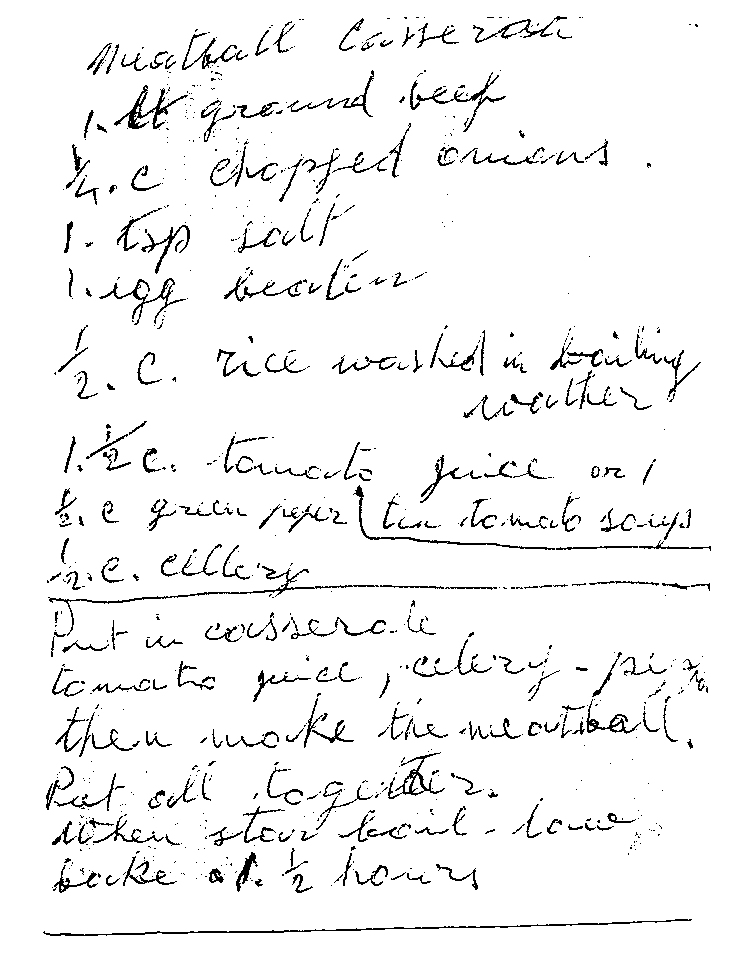 Meatball Casserole
1. lb ground beef
1/4. c chopped onions.
1. tsp salt
1. egg beaten
1/2. c. rice washed in boiling
wather
1. 1/2 c. tomato juice or 1
1/2. c green peper tin tomato soups
1/2. c. cellery
Put in casserole
tomato juice, celery - 
then make the meatball.
Put all together.
When star boil - low,
bake 1. 1/2 hours